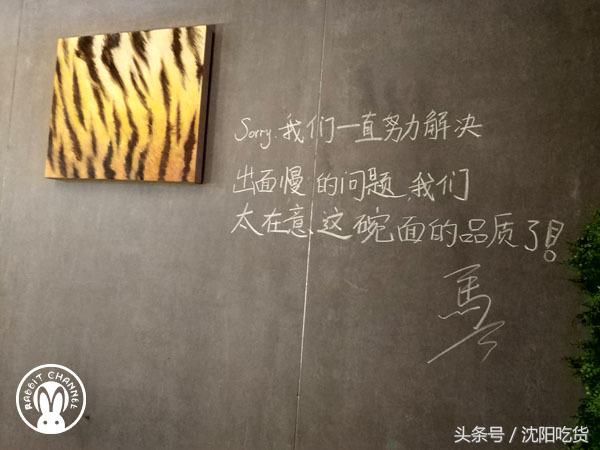 Sorry.我们一直努力解决
出面慢的问题,我们
太在意这碗面的品质了!
馬
RABBIT CHANNEL
头条号 / 沈阳吃货